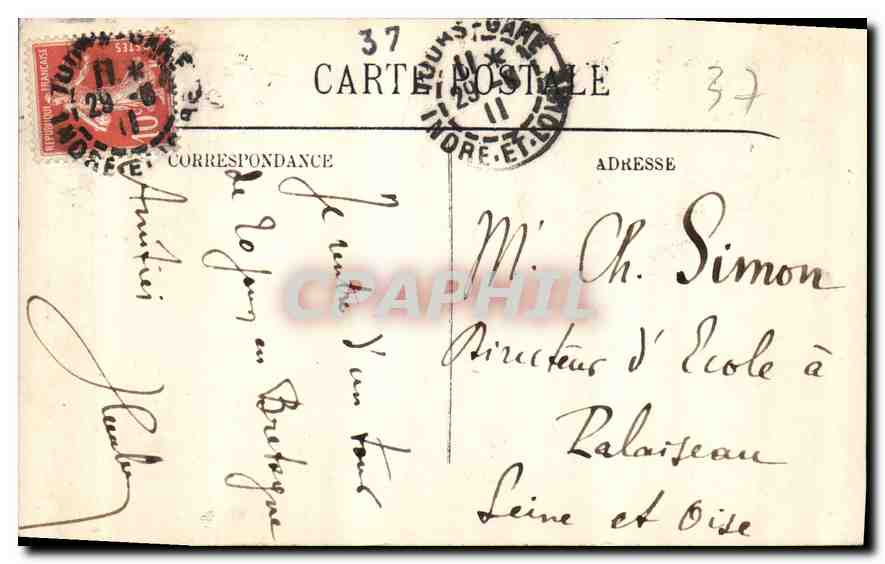 37
CARTE POSTALE
37
TOURS-GARE
11 *
29 -8
11
INDRE-ET-LOIRE
REPUBLIQUE FRANCAISE
POSTES
10
TOURS-GARE
11 *
29 -8
11
INDRE-ET-
CORRESPONDANCE
Je rentre d'un tour
de 20 jours en Bretagne
Amitiés
ADRESSE
Mr. Ch. Simon
Directeur d'Ecole à
Palaiseau
Seine et Oise
CPAPHIL